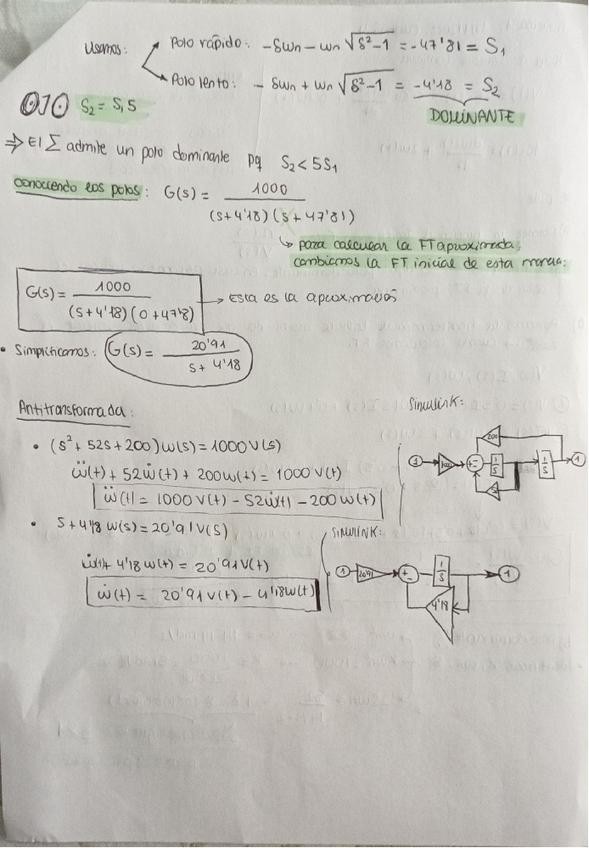 Usamos:
Polo rápido: -δωn - ωn √(δ²-1) = -47'81 = S₁
Polo lento: -δωn + ωn √(δ²-1) = -4'18 = S₂
DOMINANTE
OJO S₂ = S,5
⇒ El Σ admite un polo dominante pq S₂ < 5S₁
conociendo los polos: G(s) = 1000 / (s+4'18)(s+47'81)
↳ para calcular la FT aproximada,
cambiamos la FT inicial de esta manera:
G(s) = 1000 / (s+4'18)(0+47'8) → Esta es la aproximación
• Simplificamos: G(s) = 20'91 / s+4'18
Antitransformada:
Simulink:
• (s²+52s+200)ω(s) = 1000V(s)
ω̈(t) + 52ω̇(t) + 200ω(t) = 1000V(t)
ω̈(t) = 1000V(t) - 52ω̇(t) - 200ω(t)
200
1
+
-
1/s
1/s
1
• s+4'18 ω(s) = 20'91V(s)
ω̇(t)+ 4'18ω(t) = 20'91V(t)
ω̇(t) = 20'91V(t) - 4'18ω(t)
SIMULINK:
1
2091
+
-
1/s
1
4'18